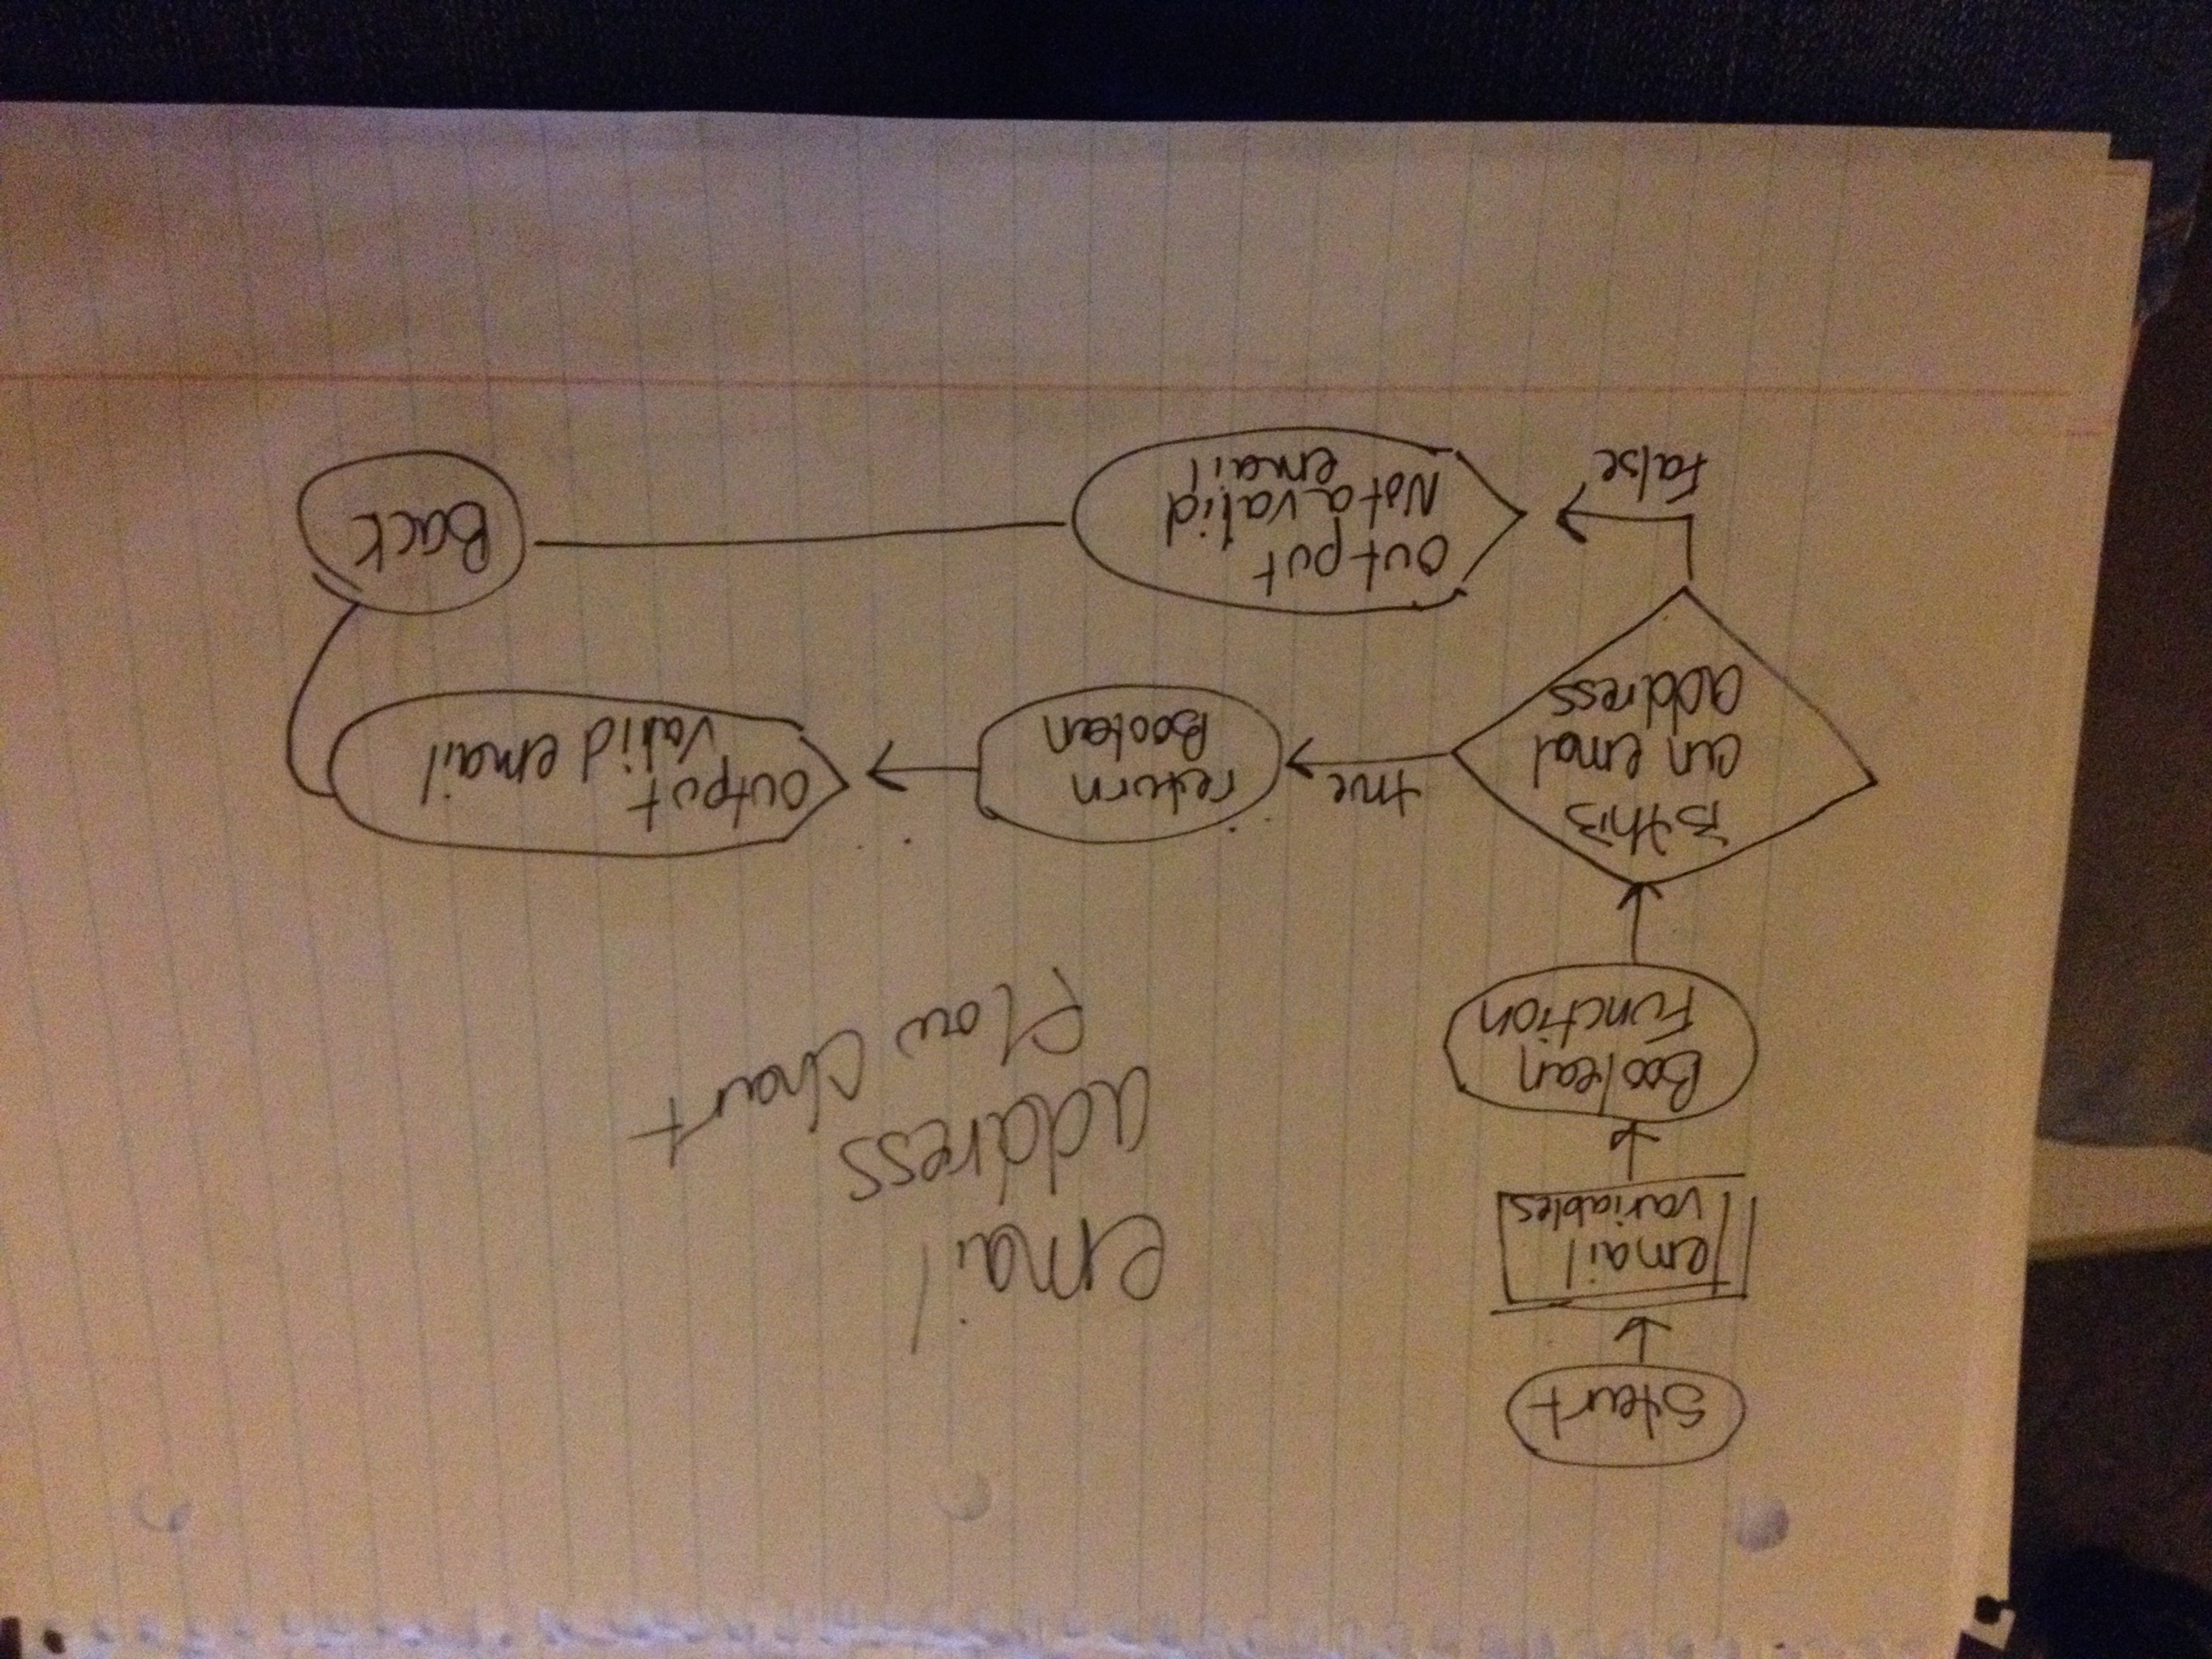 email
address
Flow Chart
Start
email
variables
Boolean
Function
is this
an emal
address
true
return
Boolean
output
valid email
False
output
Not a valid
email
Back